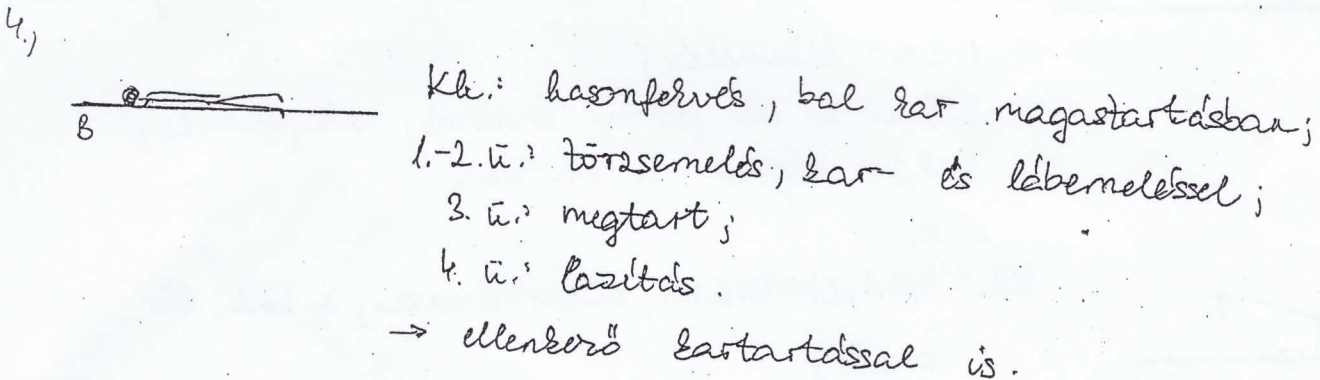 4.,
B
Kh.: hasonfekvés, bal kar magastartásban;
1.-2. ü.: törzsemelés, kar és lábemeléssel;
3. ü.: megtart;
4. ü.: lazítás.
→ ellenkező kartartással is.